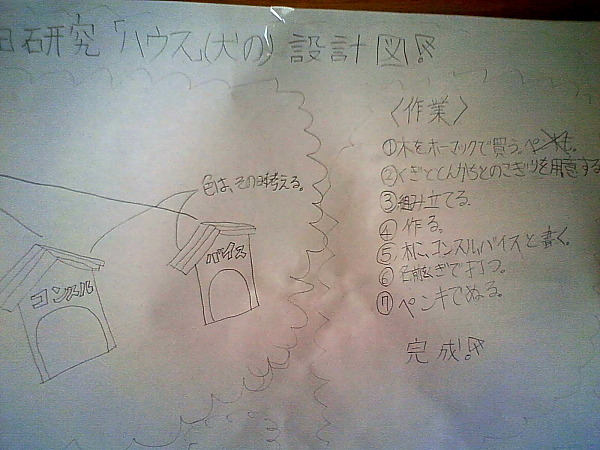 日研究「ハウス」(犬の)設計図!
色は、その時考える。
コンスル
バイス
〈作業〉
①木をホーマックで買う。ペンキも。
②くぎととんかちとのこぎりを用意する
③組み立てる。
④作る。
⑤木に、コンスル、バイスと書く。
⑥名前くぎで打つ。
⑦ペンキでぬる。
完成!